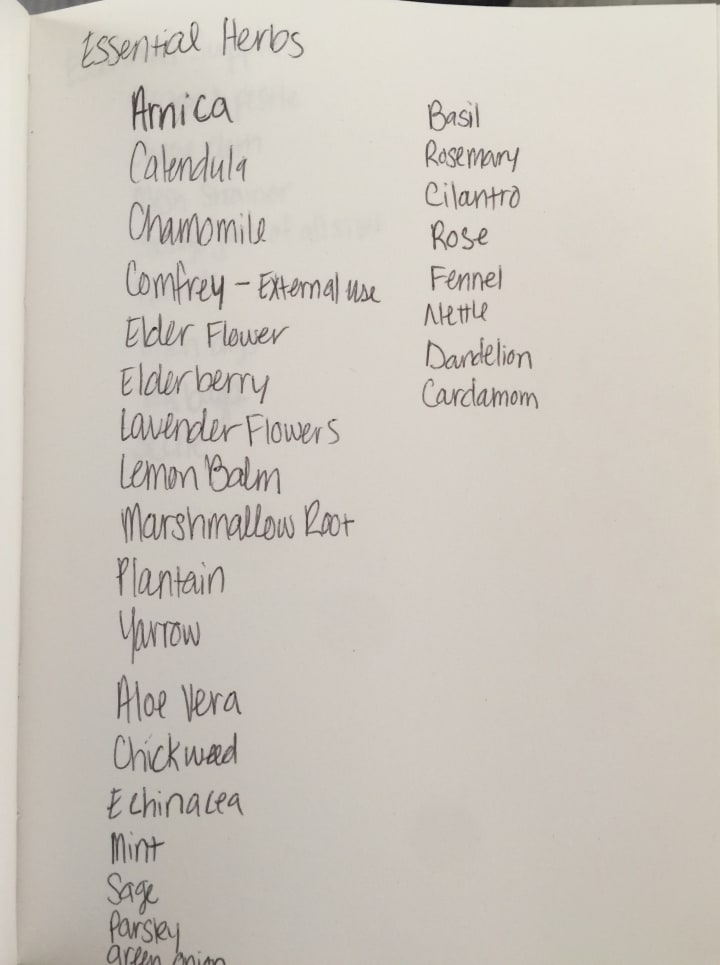 Essential Herbs
Arnica
Calendula
Chamomile
Comfrey - External use
Elder Flower
Elderberry
Lavender Flowers
Lemon Balm
Marshmallow Root
Plantain
Yarrow
Aloe Vera
Chickweed
Echinacea
Mint
Sage
Parsley
green onion
Basil
Rosemary
Cilantro
Rose
Fennel
Nettle
Dandelion
Cardamom